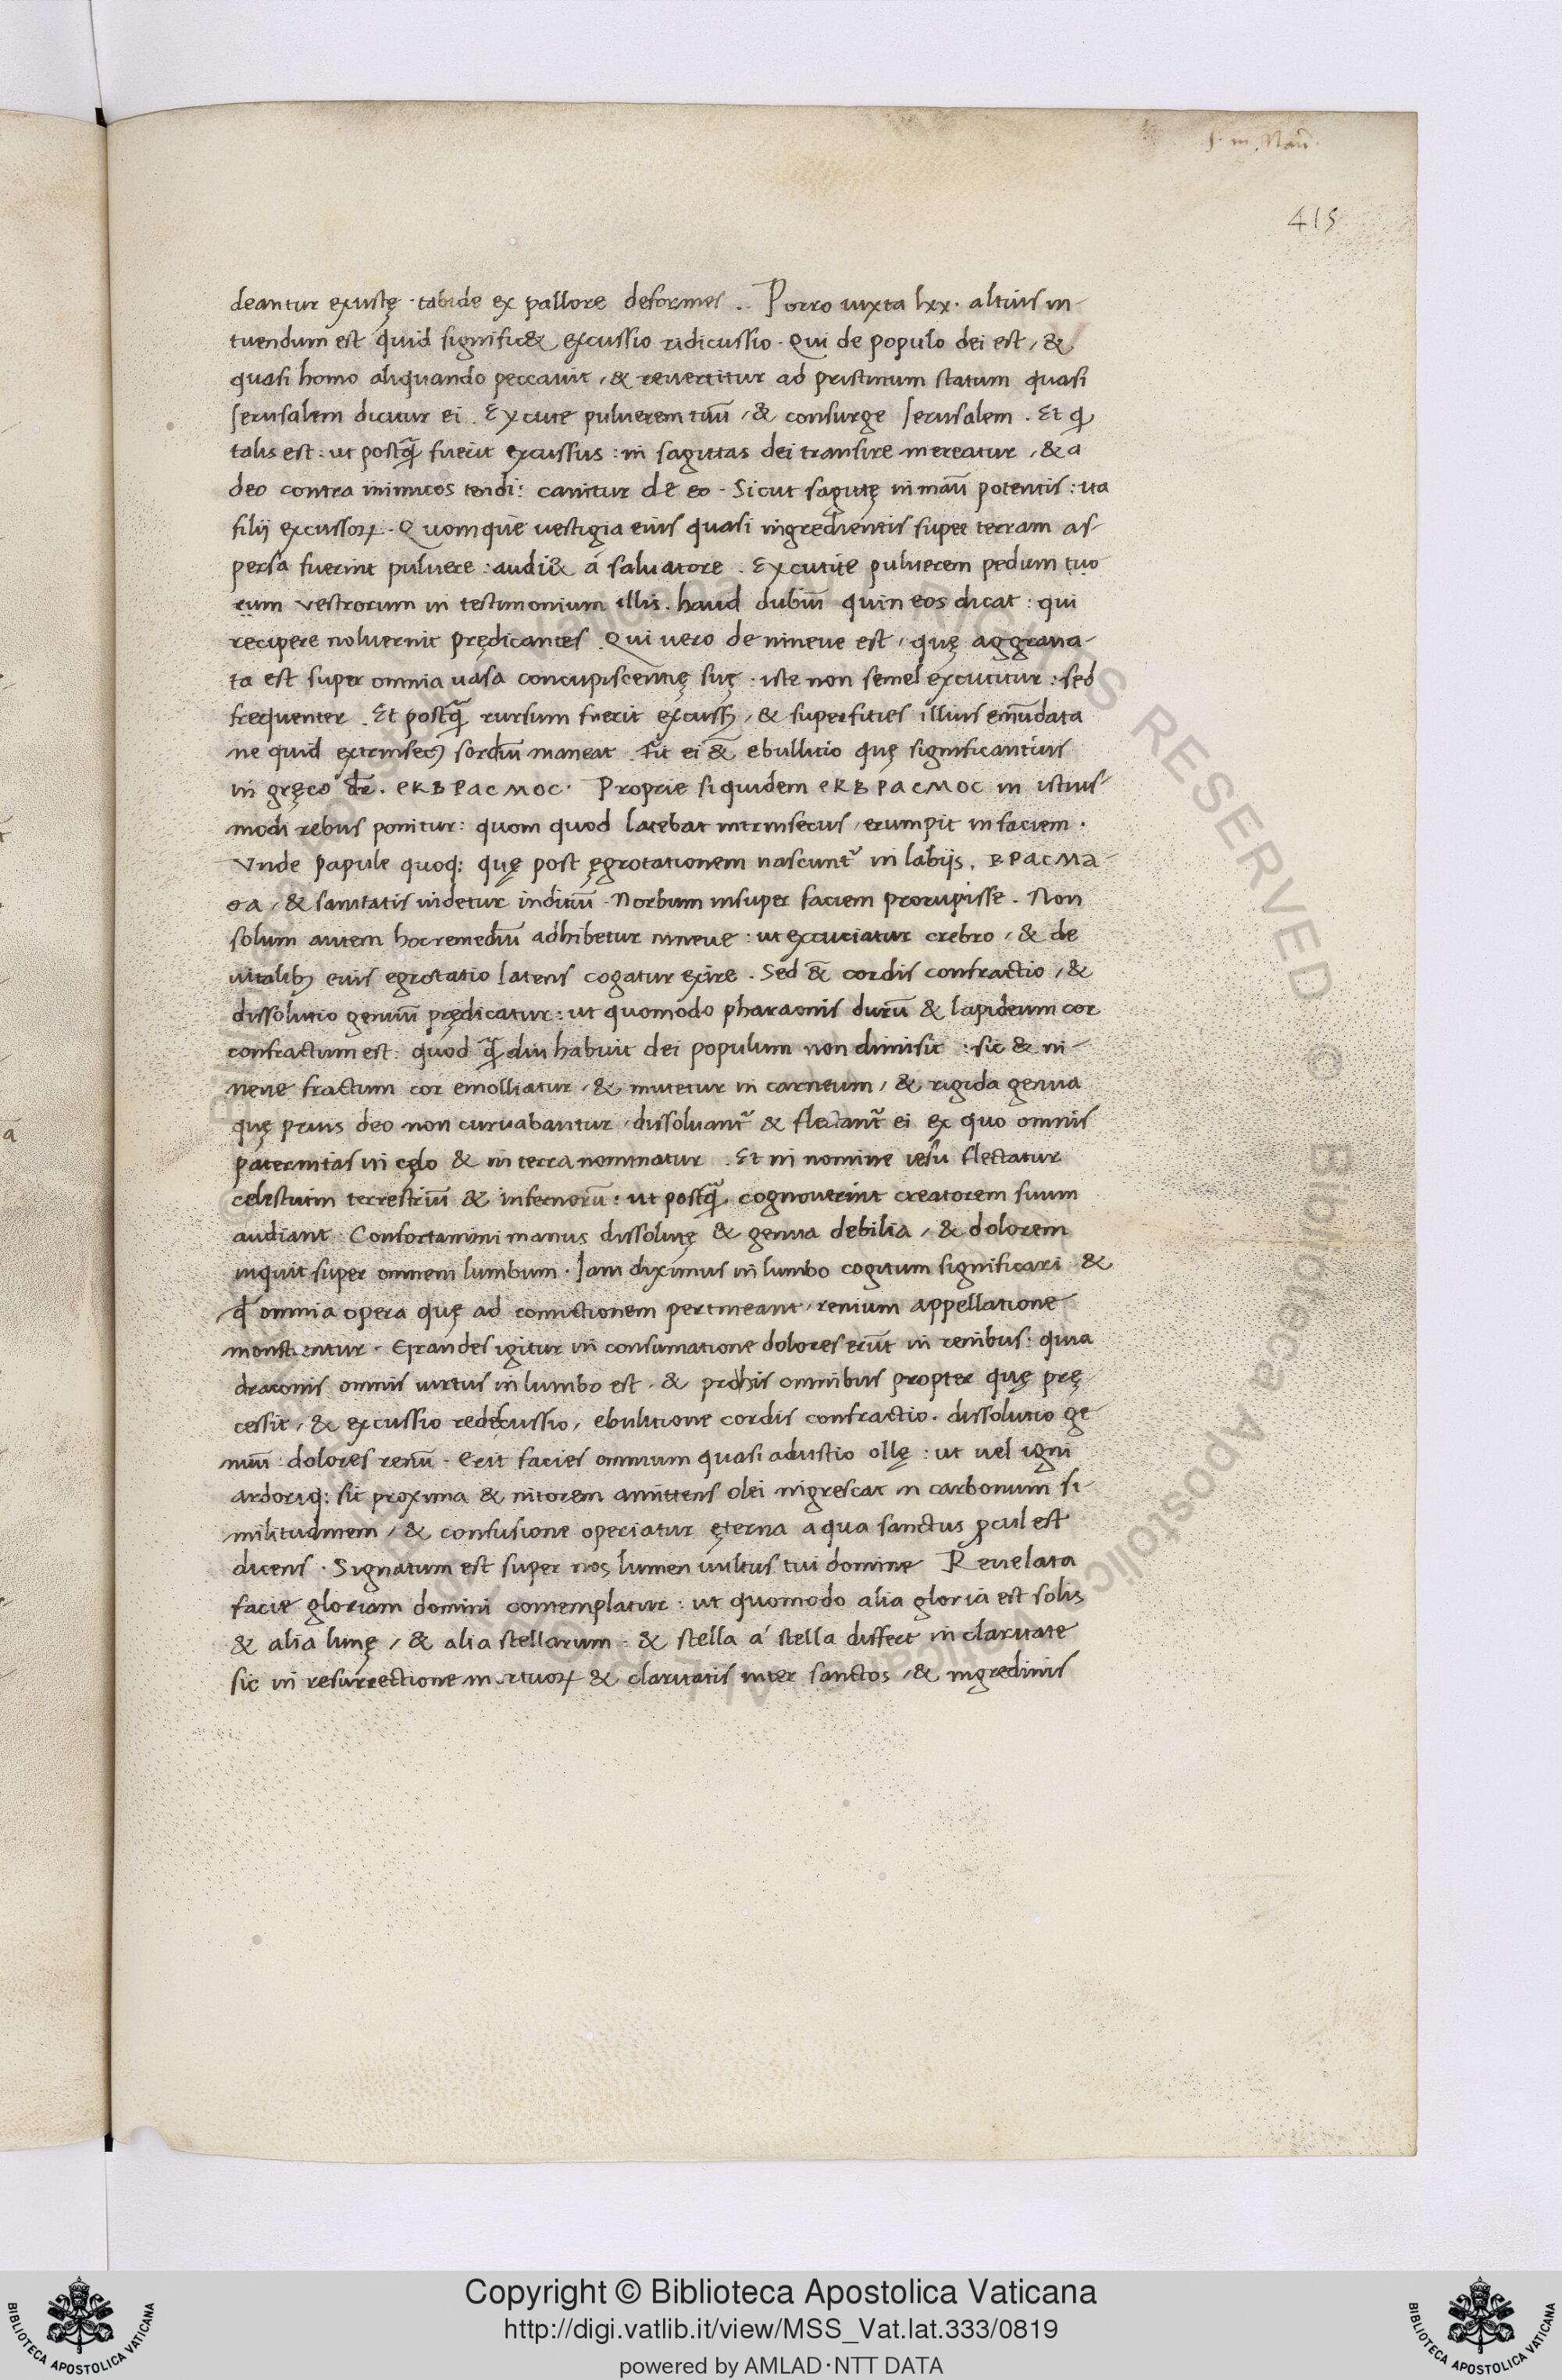 S. in. Nau.
415
deantur exustę · tabide ex pallore deformes .. Porro iuxta lxx. altius in-
tuendum est quid signific& excussio ridicussio. Qui de populo dei est, &
quasi homo aliquando peccauit, & reuertitur ad pristinum statum quasi
Jerusalem dicitur ei. Excute puluerem tuū, & consurge Jerusalem. Et q̄
talis est: ut postq̄ fuerit excussus: in sagittas dei transire mereatur, & a
deo contra inimicos tendi: canitur de eo. Sicut sagittę in manū potentis: ita
filij excussoꝝ. Quomque vestigia eius quasi ingredientis super terram as-
persa fuerint puluere: audi& á saluatore. Excutite puluerem pedum tuo
rum vestrorum in testimonium illis. haud dubiū quin eos dicat: qui
recipere noluerint prędicantes. Qui vero de nineue est, quę aggraua-
ta est super omnia uasa concupiscentię suę: iste non semel excutitur: sed
frequenter. Et postq̄ rursum fuerit excuss9, & superficies illius emūdata
ne quid extrinsec9 sordiū maneat. Fit ei &̄ ebullitio quę significantius
in gręco dr̄. eKBPacMoc. Proprie siquidem eKBPacMoc in istius-
modi rebus ponitur: quom quod latebat intrinsecus, erumpit in faciem.
Vnde papule quoq; quę post ęgrotationem nascunt᷑ in labijs, BPacMa-
σa, & sanitatis uidetur inditiū. Morbum insuper faciem prorupisse. Non
solum autem hoc remediū adhibetur nineue: ut excutiatur crebro, & de
uitalib; eius egrotatio latens cogatur exire. Sed &̄ cordis confractio, &
dissolutio genuū prędicatur: ut quomodo pharaonis durū & lapideum cor
confractum est: quod q̄ diu habuit dei populum non dimisit: sic & ni-
neue fractum cor emolliatur, & mutetur in carneum, & rigida genua
quę prius deo non curuabantur, dissoluant᷑ & flectant᷑ ei ex quo omnis
paternitas in cęlo & in terra nominatur. Et in nomine iesu flectatur
celestium terrestriū & infernorū: ut postq̄ cognouerint creatorem suum
audiant. Confortamini manus dissolutę & genua debilia, & dolorem
inquit super omnem lumbum. Jam diximus in lumbo cogitum significari &
q̄ omnia opera quę ad comictionem pertineant, renium appellatione
monstrentur. Grandes igitur in consumatione dolores erūt in renibus. quia
draconis omnis uirtus in lumbo est. & pro his omnibus propter quę prę
cessit, & excussio redecussio, ebulitione cordis confractio. dissolutio ge
nuū: dolores renū. Erit facies omnium quasi adustio ollę: ut uel igni
ardoriq; sit proxima & nitorem amittens olei nigrescat in carbonum si-
militudinem, & confusione operiatur ęterna a qua sanctus ꝓcul est
dicens. Signatum est super nos lumen uultus tui domine Reuelata
facie gloriam domini contemplatur: ut quomodo alia gloria est solis
& alia lunę, & alia stellarum: & stella á stella differt in claritate
sic in resurrectione mortuoꝝ & claritatis inter sanctos, & ingredinis
Copyright © Biblioteca Apostolica Vaticana
http://digi.vatlib.it/view/MSS_Vat.lat.333/0819
powered by AMLAD·NTT DATA